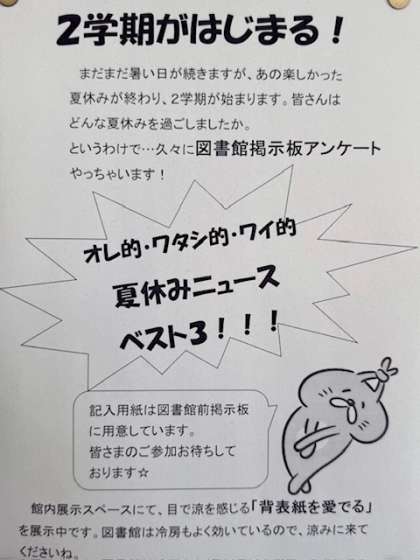 2学期がはじまる！
まだまだ暑い日が続きますが、あの楽しかった
夏休みが終わり、2学期が始まります。皆さんは
どんな夏休みを過ごしましたか。
というわけで…久々に図書館掲示板アンケート
やっちゃいます！
オレ的・ワタシ的・ワイ的
夏休みニュース
ベスト3！！！
記入用紙は図書館前掲示板
に用意しています。
皆さまのご参加お待ちして
おります☆
館内展示スペースにて、目で涼を感じる「背表紙を愛でる」
を展示中です。図書館は冷房もよく効いているので、涼みに来て
くださいね。